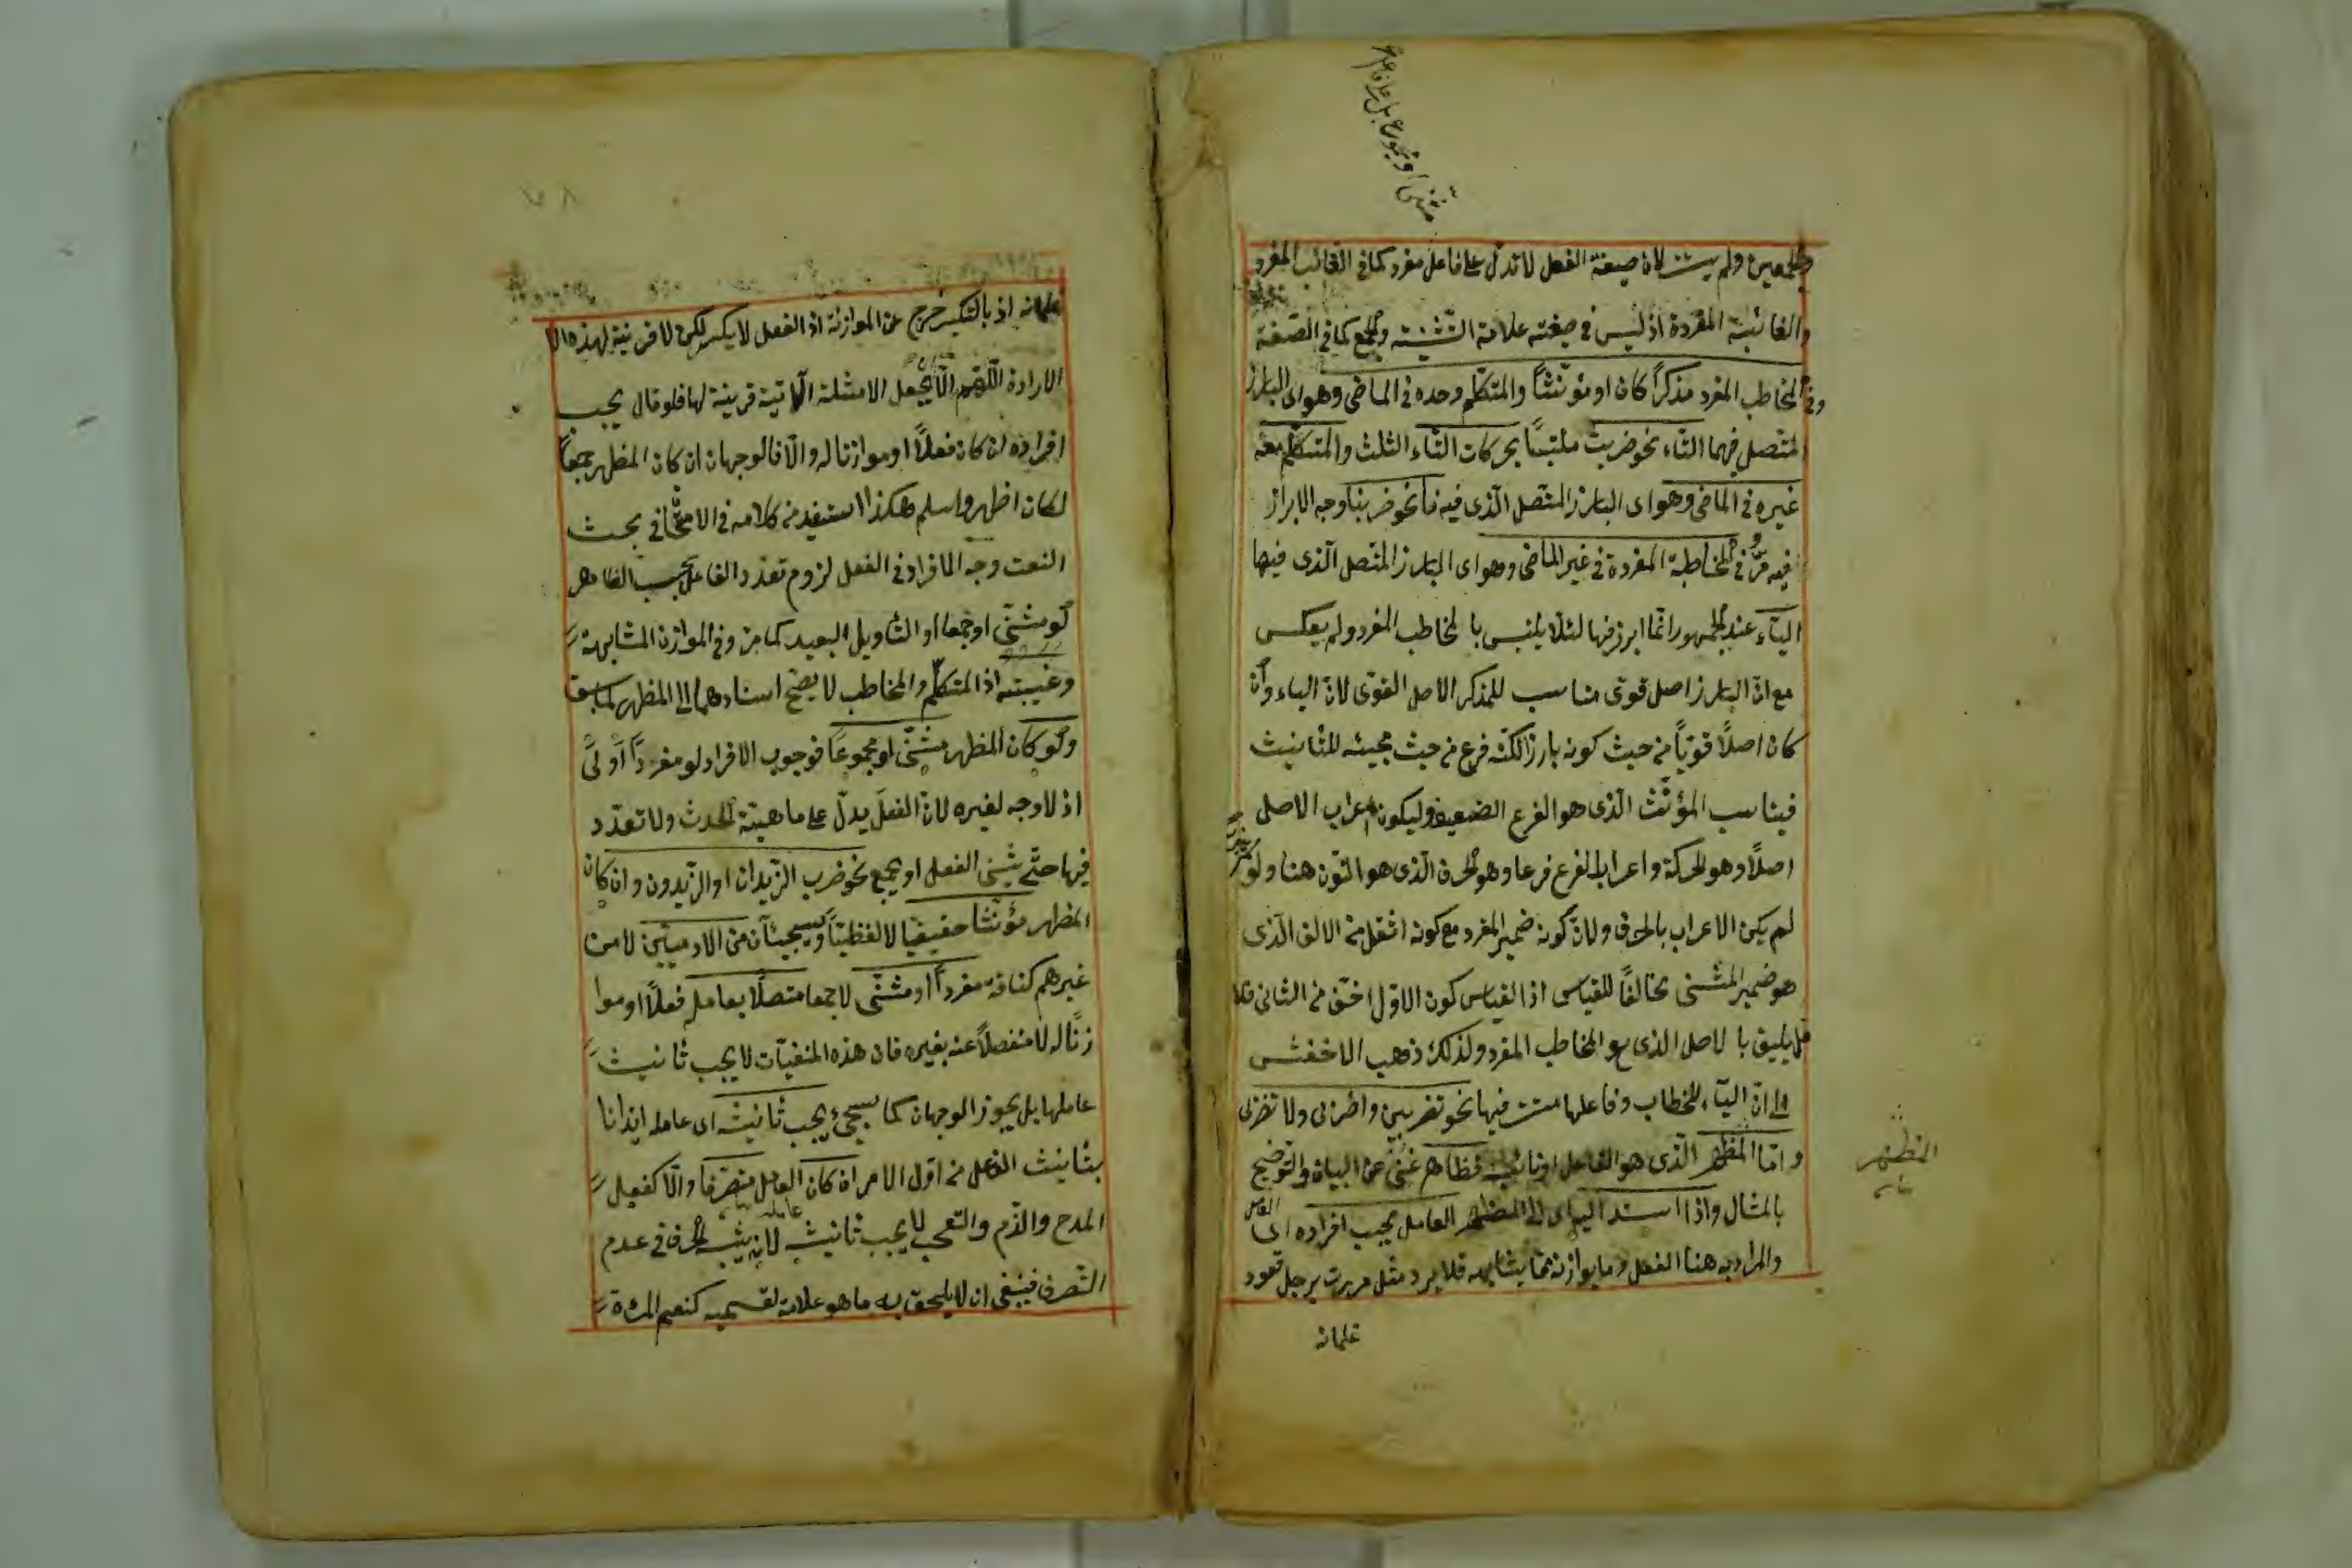 ولم يستتر لان صيغة الفعل لا تدل على فاعل مفرد كما فى الغائب المفرد
والغائبة المفردة اذ ليس فى صيغته علامة التثنية والجمع كما فى الصفة
وفى المخاطب المفرد مذكراً كان او مؤنثاً والمتكلم وحده فى الماضى وهو اى البارز
المتصل فيهما التاء نحو ضربت ملتبساً بحركات التاء الثلث والمتكلم معه
غيره فى الماضى وهو اى البارز المتصل الذى فيه نا نحو ضربنا وجه الابراز
فيه مر وفى المخاطبة المفردة فى غير الماضى وهو اى البارز المتصل الذى فيها
الياء عند الجمهور وانما ابرز فيها لئلا يلتبس با لمخاطب المفرد ولم يعكس
مع ان البارز اصل قوى مناسب للمذكر الاصل القوى لان الياء وان
كان اصلاً قوياً من حيث كونه بارزا لكنه فرع من حيث مجيئه للتأنيث
فيناسب المؤنث الذى هو الفرع الضعيف وليكون اعراب الاصل
اصلاً وهو الحركة واعراب الفرع فرعا وهو الحرف الذى هو النون هنا ولو
لم يكن الاعراب بالحرف ولان كونه ضمير المفرد مع كونه اثقل من الالف الذى
هو ضمير المثنى مخالفاً للقياس اذ القياس كون الاول اخف من الثانى فلا
يليق با لاصل الذى هو المخاطب المفرد ولذلك ذهب الاخفش
الى ان الياء للخطاب وفاعلها مستتر فيها نحو تضربين واضربى ولا تضربى
واما المظهر الذى هو الفاعل او نائبه فظاهر غنى عن البيان والتوضيح
بالمثال واذا اسند اى الى المظهر العامل يجب افراده اى العامل
والمراد به هنا الفعل وما يوازنه مما يشابهه فلا يرد مثل مررت برجل قعود
غلمانه
غلمانه اذ بالتكسير خرج عن الموازنة اذ الفعل لا يكسر لكن لا قرينة لهذه الا
الارادة اللهم الا ان يجعل الامثلة الآتية قرينة لها فلو قال يجب
افراده ان كان فعلاً او موازنا له والا فالوجهان ان كان المظهر جمعاً
لكان اظهر واسلم هكذا استفيد من كلامه فى الامتحان فى بحث
النعت وجه الافراد فى الفعل لزوم تعدد الفاعل بحسب الظاهر
لو مثنى او جمعا او التأويل البعيد كما مر وفى الموازن المشابهة
وغيبته اذ المتكلم والمخاطب لا يصح اسنادهما الى المظهر لما سبق
ولو كان المظهر مثنى او مجموعاً فوجوب الافراد لو مفرداً اولى
اذ لا وجه لغيره لان الفعل يدل على ماهية الحدث ولا تعدد
فيها حتى يثنى الفعل او يجمع نحو ضرب الزيدان او الزيدون وان كان
المظهر مؤنثا حقيقيا لا لفظيا وسيجيئان من الادميين لا من
غيرهم كناقة مفرداً او مثنى لا جمعا متصلاً بعامله فعلاً او موا
زنا له لا منفصلاً عنه بغيره فان هذه المنفيات لا يجب تأنيث
عاملها بل يجوز الوجهان كما سيجئ يجب تأنيثه اى عامله ايذانا
بتأنيث الفاعل من اول الامر ان كان العامل متصرفا والا كفعل
المدح والذم والتعجب لا يجب تأنيث عامله لانه يشبه الحرف فى عدم
التصرف فينبغى ان لا يلحق به ما هو علامة لقسميه كنعم المرءة